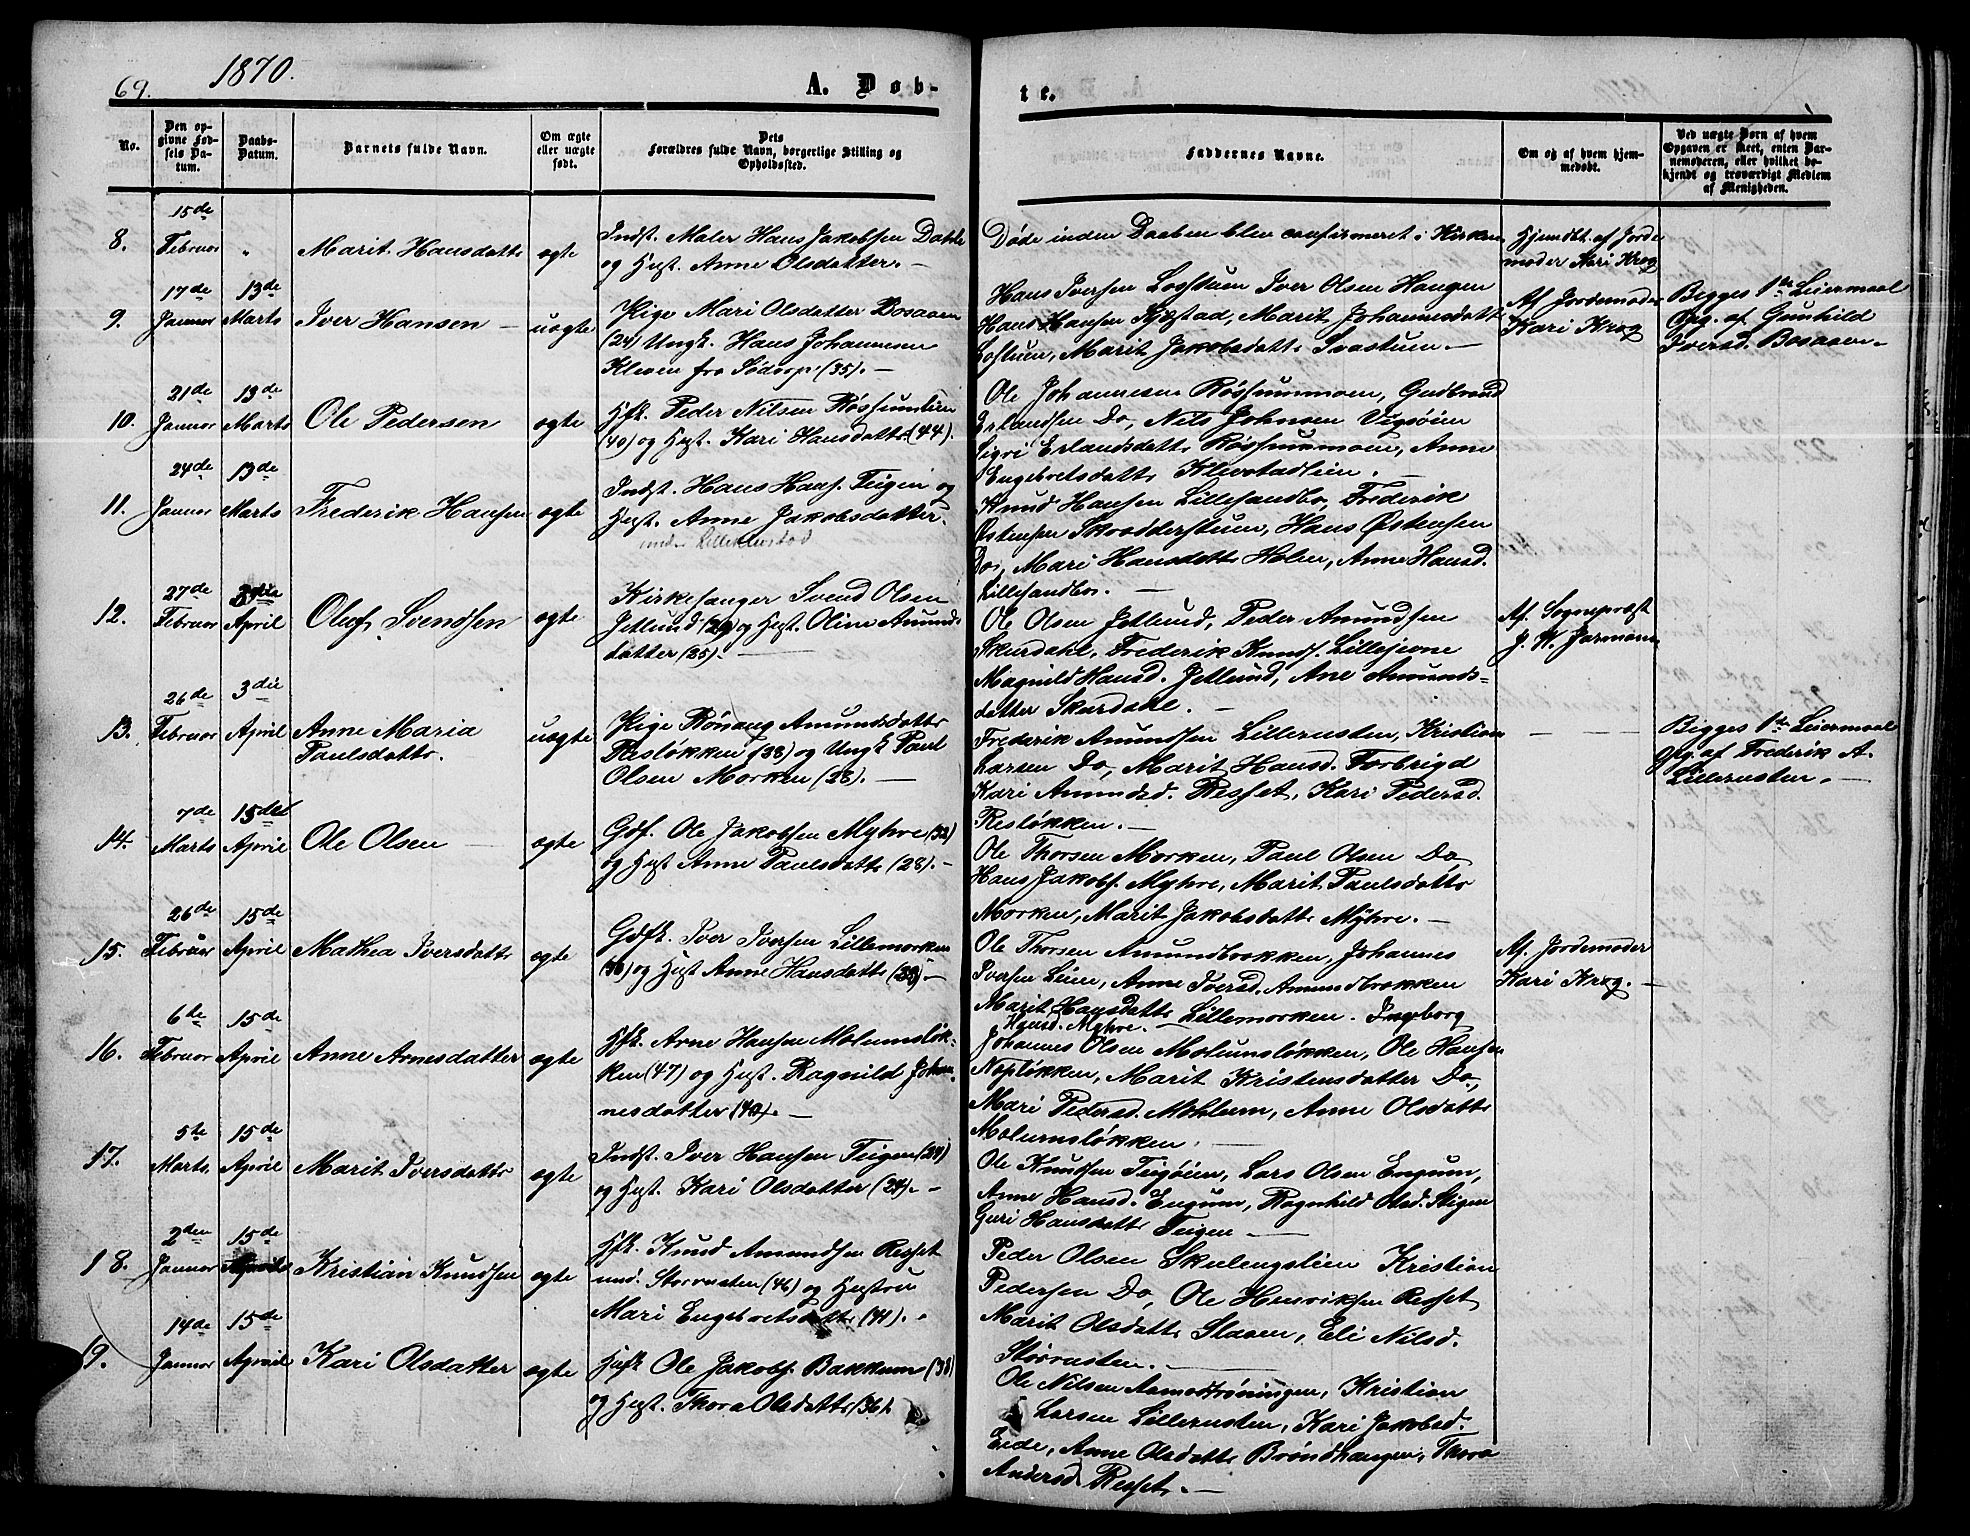 69.
1870.
A. Døb-
te.
No.
Den op-
givne Fød-
sels Da-
tum.
Daabs-
Datum.
Barnets fulde Navn.
Om ægte
eller uægte
født.
Dets
Forældres fulde Navn, borgerlige Stilling og
Opholdssted.
Faddernes Navne.
Om og af hvem hjem-
medøbt.
Ved uægte Børn af hvem
Opgaven er skeet, enten Bar-
nemoderen, eller hvilket be-
kjendt og troværdigt Medlem
af Menigheden.
8.
15de
Februar
"
Marit Hansdattr
ægte
Indst. Maler Hans Jakobsen Dahle
og Hust. Anne Olsdatter. -
Døde inden Daaben blev confirmeret i Kirken
Hjemdbt. af Jorde
moder Kari Krog
9.
17de
Januar
13de
Marts
Iver Hansen -
uægte
Pige Mari Olsdatter Bosaaen
(24) Ungk. Hans Johannesen
Kleven fra Södorp (35). -
Hans Iversen Losstuen Iver Olsen Haugen
Hans Hansen Kjæstad, Marit Johannesdattr
Losstuen, Marit Jakobsdattr Svastuen. -
Af Jordemoder
Kari Krog
Begges 1ste Leiermaal
Opg. af Gunhild
Iversd. Bosaaen. -
10.
21de
Januar
13de
Marts
Ole Pedersen
ægte
Hfk. Peder Nilsen Røssumlien
(40) og Hust. Kari Hansdattr (44).
Ole Johannesen Røssummoen, Gudbrand
Erlandsen Do, Nils Johnsen Vigsøien
Sigri Erlandsdattr Røssummoen, Anne
Engebretsdattr Klevstadlien. -
11.
24de
Januar
13de
Marts
Frederik Hansen
ægte
Indst. Hans Hans. Teigen og
Hust. Anne Jakobsdatter.
under Lilleklevstad
Knud Hansen Lillesandbo, Frederik
Østensen Skrædderstuen, Hans Østensen
Do, Mari Hansdattr Holen, Anne Hansd.
Lillesandbo. -
12.
27de
Februar
3die
April
Oluf Svendsen
ægte
Kirkesanger Svend Olsen
Jetlund (29) og Hust. Oline Amunds-
datter (25). -
Ole Olsen Jetlund, Peder Amundsen
Skurdahl, Frederik Knuds. Lillejevne
Magnild Hansd. Jetlund, Ane Amunds-
datter Skurdahl. -
Af. Sognepræst
J. W. Jarmann
13.
26de
Februar
3die
April
Anne Maria
Paulsdattr.
uægte
Pige Rönaug Amundsdattr
Resløkken (33) og Ungk Paul
Olsen Morken (28). -
Frederik Amundsen Lillerusten, Kristian
Larsen Do, Marit Hansd. Forbrigd
Kari Amundsd. Resset, Kari Pedersd.
Resløkken. -
Begges 1ste Leiermaal
Opg. af Frederik A.
Lillerusten. -
14.
7de
Marts
15de
April
Ole Olsen -
ægte
Gdf. Ole Jakobsen Myhre (32)
og Hust Anne Paulsdattr (28). -
Ole Thorsen Morken, Paul Olsen Do
Hans Jakobs. Myhre, Marit Paulsdattr
Morken, Marit Jakobsdattr Myhre. -
15.
26de
Februar
15de
April
Mathea Iversdattr
ægte
Gdfk. Iver Iversen Lillemorken
(36) og Hust Anne Hansdattr (39) -
Ole Thorsen Amundbakken, Johannes
Iversen Lien, Anne Iversd. Amundbakken
Marit Hansdattr Lillemorken. Ingeborg
Hansd. Myhre. -
Af. Jordemoder
Kari Krog. -
16.
6de
Februar
15de
April
Anne Arnesdatter
ægte
Hfk. Arne Hansen Molumsløk-
ken (47) og Hust. Ragnild Johan-
nesdatter (40). -
Johannes Olsen Molumsløkken, Ole Hansen
Nopløkken, Marit Kristensdatter Do,
Mari Pedersd. Mohlum, Anne Olsdattr
Molumsløkken. -
17.
5te
Marts
15de
April
Marit Iversdattr
ægte
Indst. Iver Hansen Teigen (24)
og Hust. Kari Olsdatter (24). -
Ole Knudsen Teigøien, Lars Olsen Engum,
Anne Hansd. Engum, Ragnhild Olsd. Stigen
Guri Hansdattr Teigen -
18.
2den
Januar
15de
April
Kristian Knudsen
ægte
Hfk. Knud Amundsen Resset
und. Storrusten (46) og Hustru
Mari Engebretsdattr (41). -
Peder Olsen Skulengslien Kristian
Pedersen Do, Ole Henriksen Resset
Marit Olsdattr Staven, Eli Nilsd.
Storrusten. -
19.
14de
Januar
15de
April
Kari Olsdatter
ægte
Husk Ole Jakobs. Bakkum (38)
og Hust. Thora Olsdattr (36).
Ole Nilsen Aamodtrøningen, Kristian
Larsen Lillerusten, Kari Jakobsd.
Eide, Anne Olsdattr Brøndhaugen, Thora
Andersd Resset. -